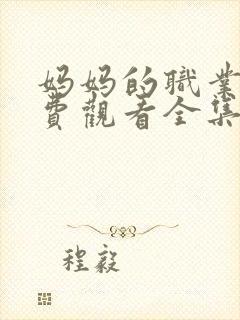 妈妈的職業
費觀看全集
程毅